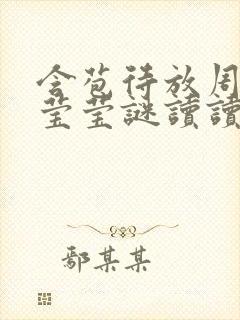 含苞待放周
莹莹謎讀讀
鄢某某